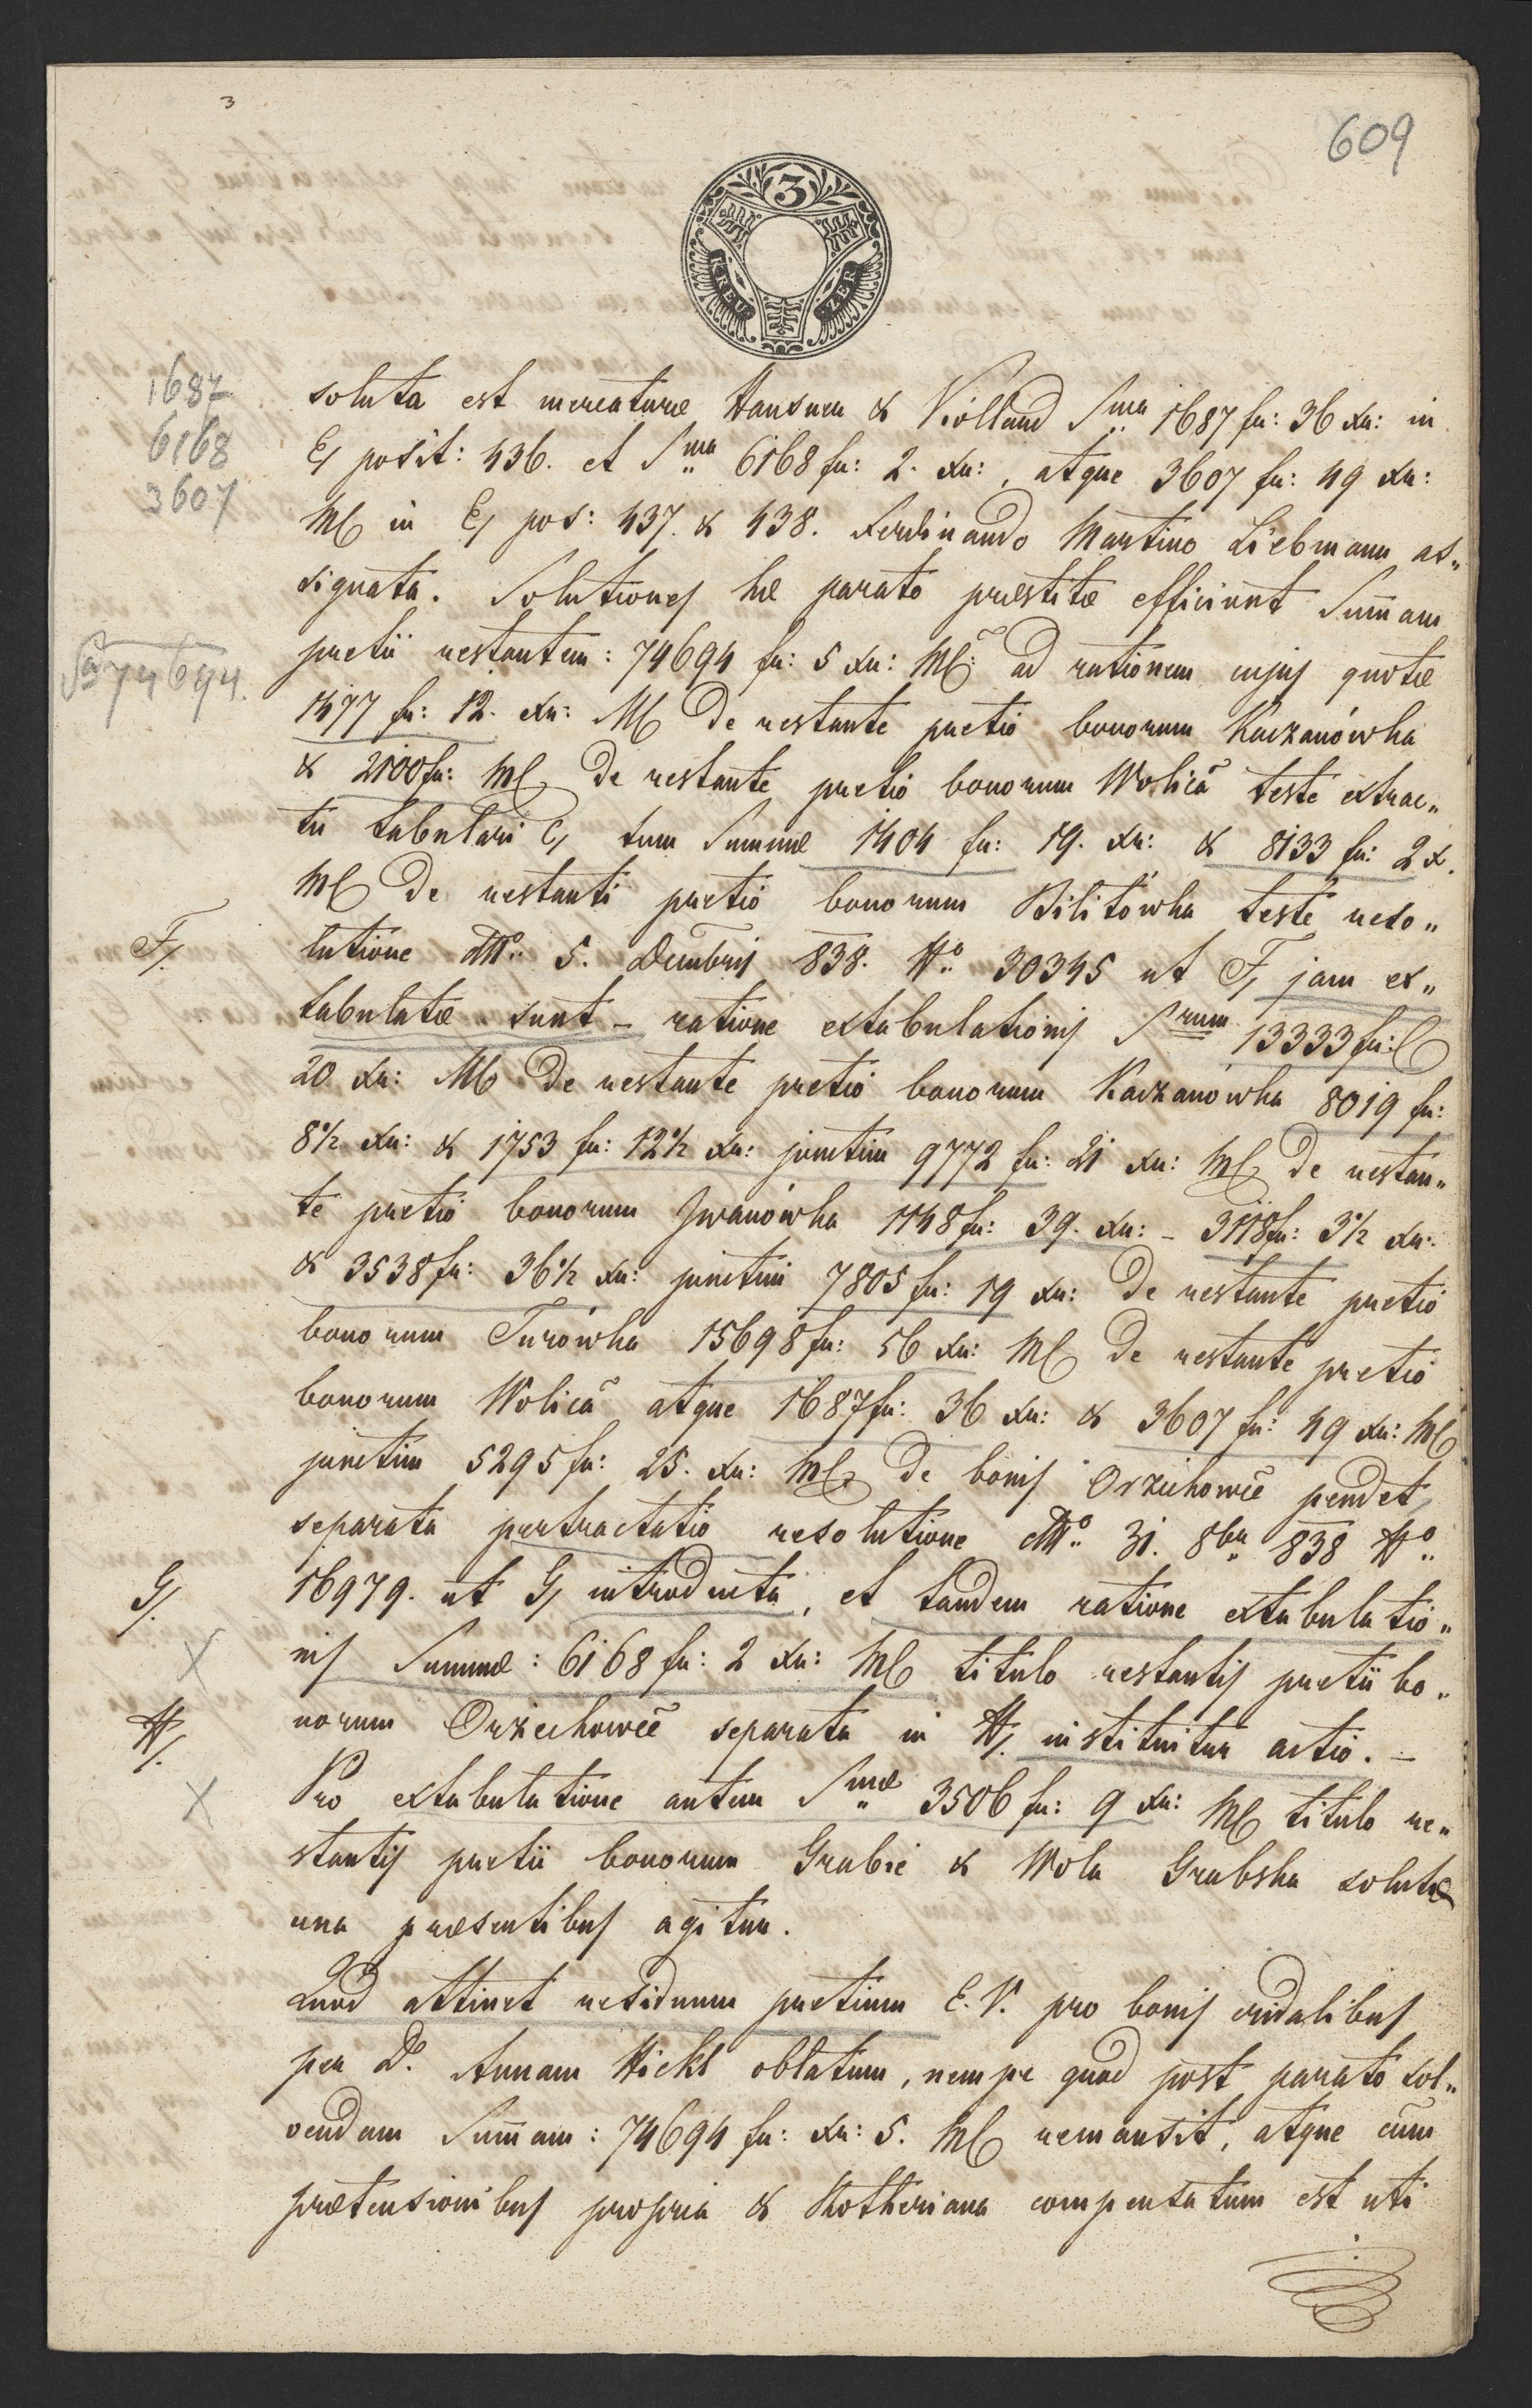 3
609
3
KREU ZER
1687
6168
3607
soluta est mercaturæ Hausner & Violland Sma 1687 fr: 36 xr: in
E/ posit: 436. et Sma 6168 fr: 2. xr:, atque 3607 fr: 49 xr:
MC in E/ pos: 437. & 438. Ferdinando Martino Liebmann as„
signata. Solutiones hæ parato præstitæ efficiunt Sum̄am
Sa 74694.
pretii restantem: 74694 fr: 5 xr: MC: ad rationem cujus quotæ
1477 fr: 12. xr: MC de restante pretio bonorum Kaczanówka
& 2100 fr: MC de restante pretio bonorum Wolica teste extrac„
tu tabulari C/ tum Summæ 1404 fr: 19. xr: & 8133 fr: 2 x.
MC de restanti pretio bonorum Bilitówka teste reso„
F/.
lutione ddto 5. Decembris 838. No 30345 ut F/ jam ex„
tabulatæ sunt – ratione extabulationis Srum 13333 fr:
20 xr: MC de restante pretio bonorum Kaczanówka 8019 fr:
8½ xr: & 1753 fr: 12½ xr: junctim 9772 fr: 21 xr: MC de restan„
te pretio bonorum Iwanówka 1148 fr: 39. xr: – 3118 fr: 3½ xr:
& 3538 fr: 36½ xr: junctim 7805 fr: 19 xr: de restante pretio
bonorum Turówka 15698 fr: 56 xr: MC de restante pretio
bonorum Wolica atque 1687 fr: 36 xr: & 3607 fr: 49 xr: MC
junctim 5295 fr: 25. xr: MC de bonis Orzechowce pendet
separata pertractatio resolutione ddto 31. 8br 838 No
G/.
16979. ut G/ introducta, et tandem ratione extabulatio„
X
nis Summæ: 6168 fr: 2 xr: MC titulo restantis pretii bo„
H/.
norum Orzechowce separata in H/. instituitur actio. –
X
Pro extabulatione autem Smæ 3506 fr: 9 xr: MC titulo re„
stantis pretii bonorum Grabie & Wola Grabska solutæ
una præsentibus agitur.
Quod attinet residuum pretium E. V. pro bonis cridalibus
per D. Annam Hickl oblatum, nempe quod post parato sol„
vendam Sum̄am: 74694 fr: xr: 5. MC remansit, atque cum
prætensionibus propria & Rotheriana compensatum est uti